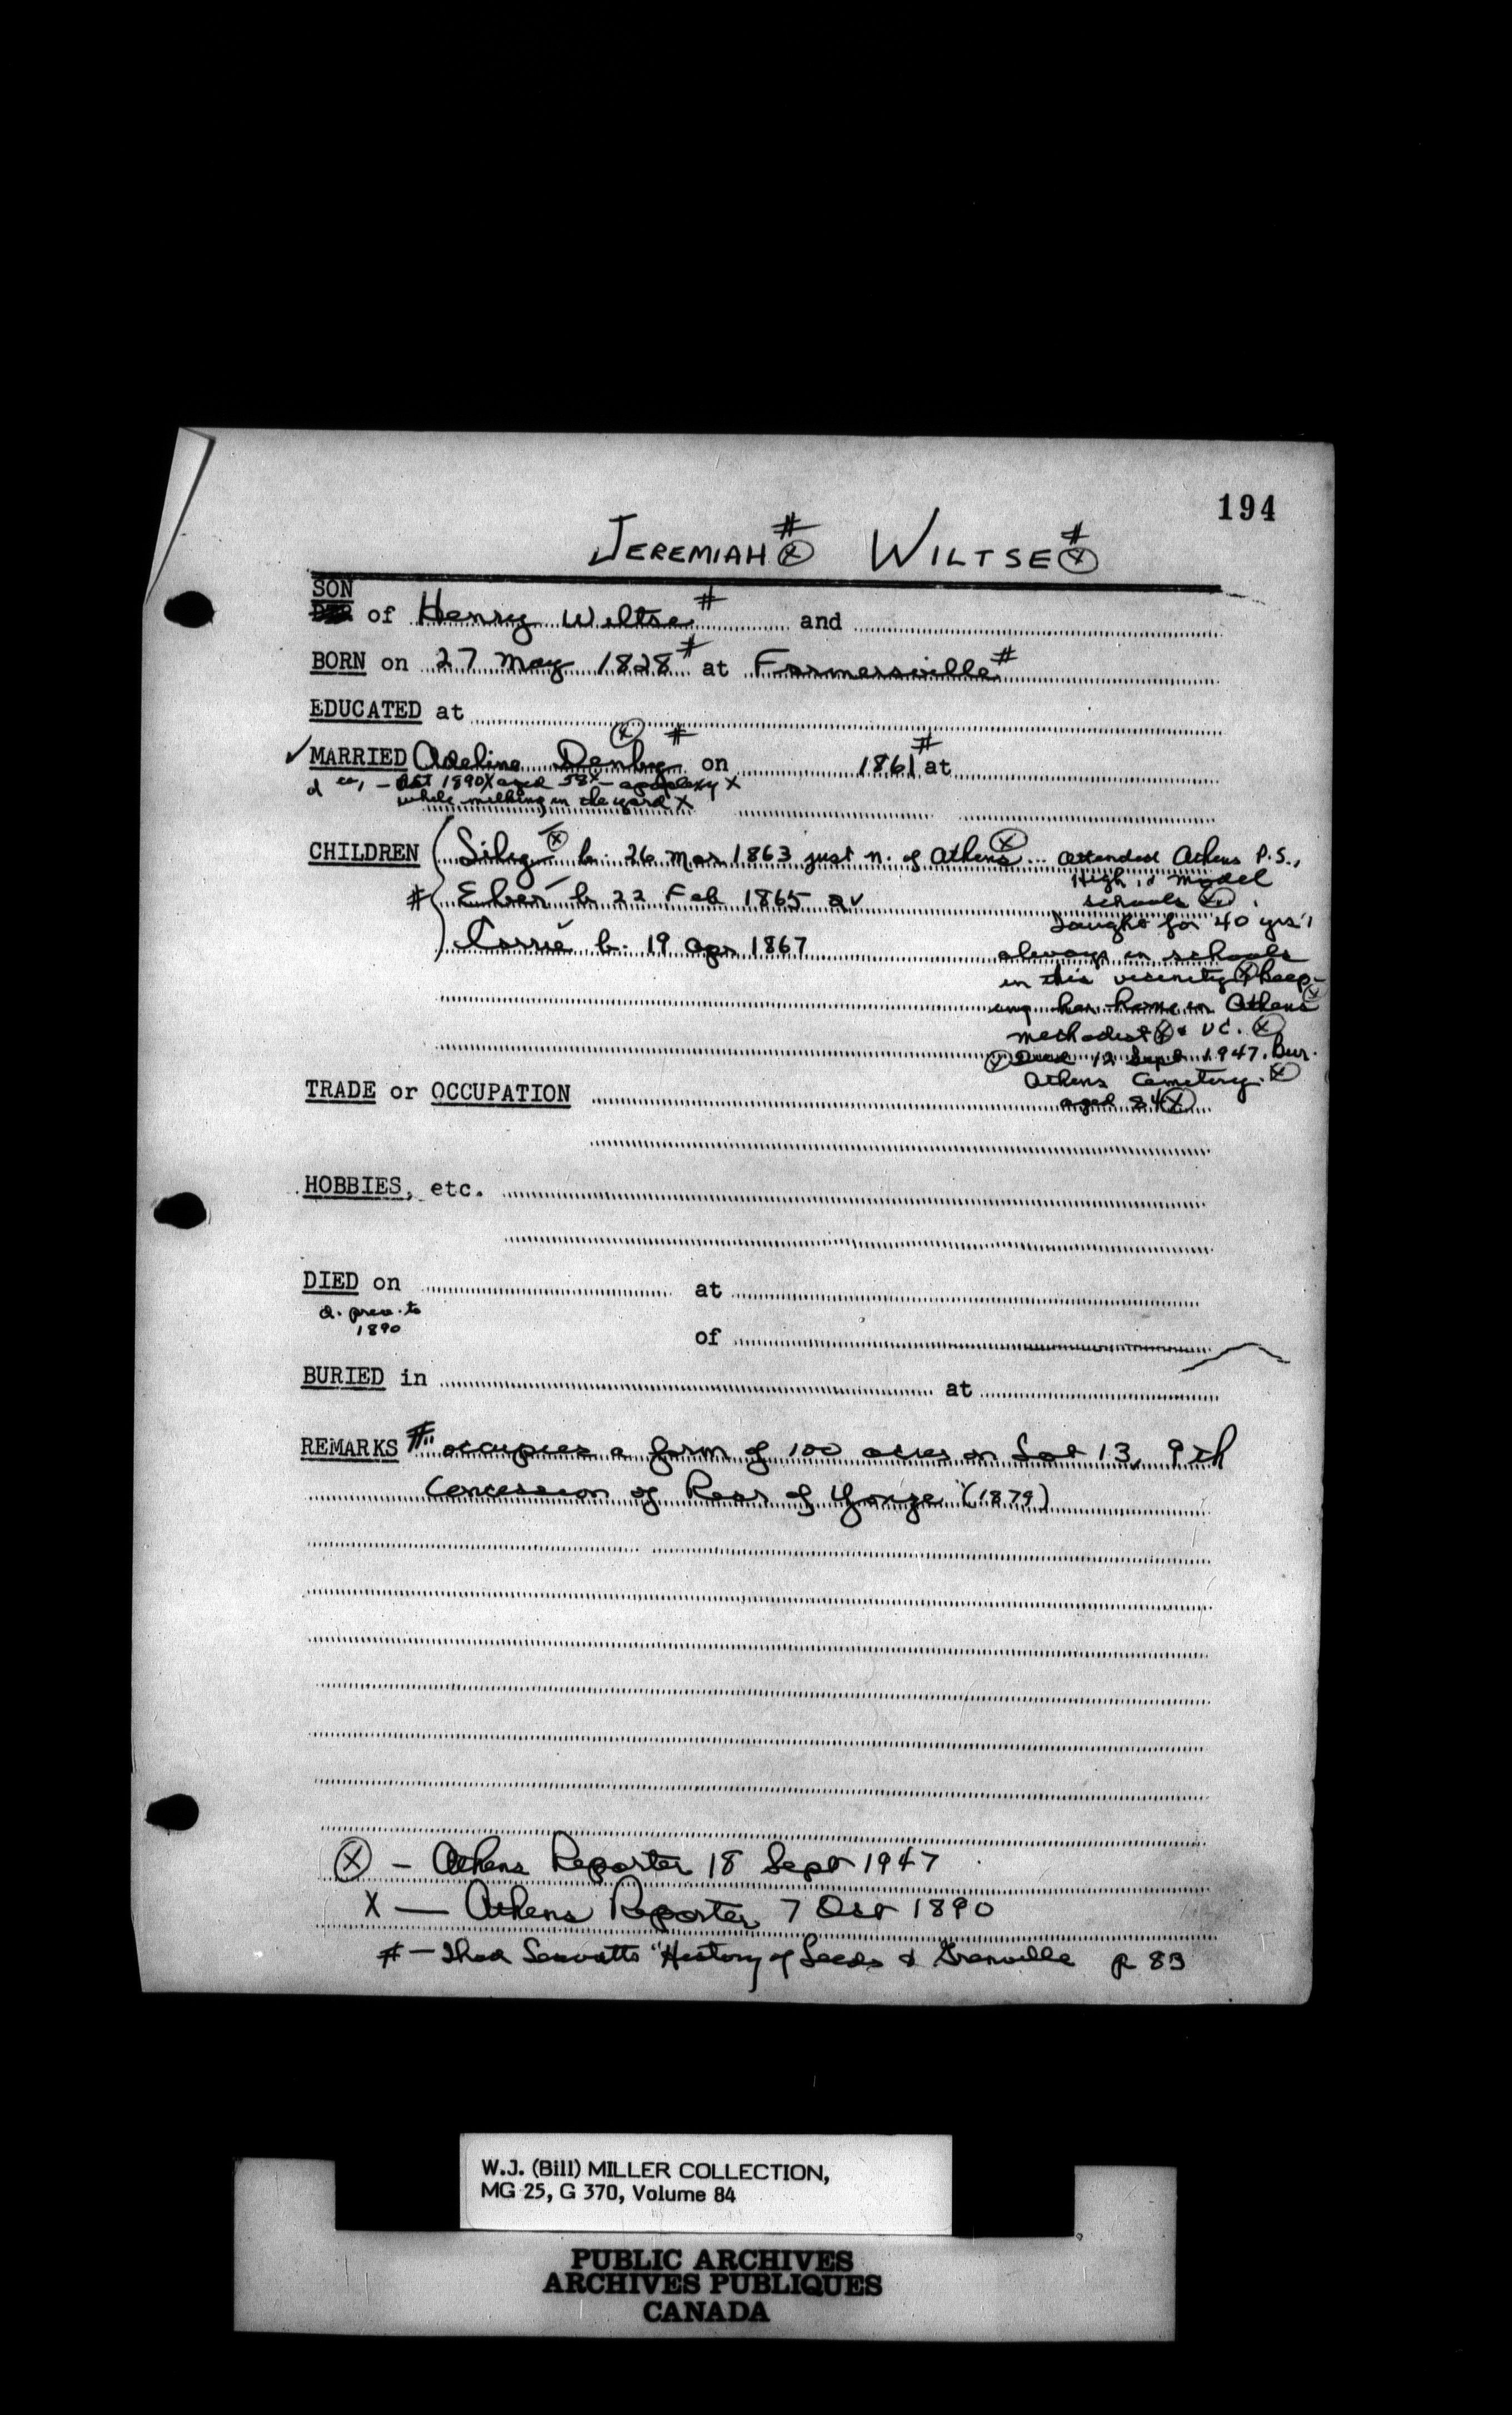 194
JEREMIAH # ⓧ WILTSE # ⓧ
SON
of Henry Wiltse # and
BORN on 27 May 1828 # at Farmersville #
EDUCATED at
✓ MARRIED Adeline Denby ⓧ # on 1861 # at
d ca, - Oct 1890 X aged 58 X - apoplexy X
while milking in the yard X
CHILDREN ⓧ b. 26 Mar 1863 just n. of Athens ⓧ ... attended Athens P.S.,
High, & Model
# Eber b 22 Feb 1865
schools ⓧ
Taught for 40 yrs,
Carrie b. 19 Apr 1867
always in schools
in this vicinity ⓧ keep-
ing her home in Athens ⓧ
Methodist ⓧ & UC. ⓧ
ⓧ Died 12 Sept 1947. Bur.
Athens Cemetery. ⓧ
TRADE or OCCUPATION
aged 84 ⓧ
HOBBIES, etc.
DIED on at
d. prev. to
1890
of
BURIED in at
REMARKS # occupies a farm of 100 acres on Lot 13, 9th
Concession of Rear of Yonge (1879)
ⓧ - Athens Reporter 18 Sept 1947
X - Athens Reporter 7 Oct 1890
# - Thad Leavitts "History of Leeds & Grenville p 83
W.J. (Bill) MILLER COLLECTION,
MG 25, G 370, Volume 84
PUBLIC ARCHIVES
ARCHIVES PUBLIQUES
CANADA